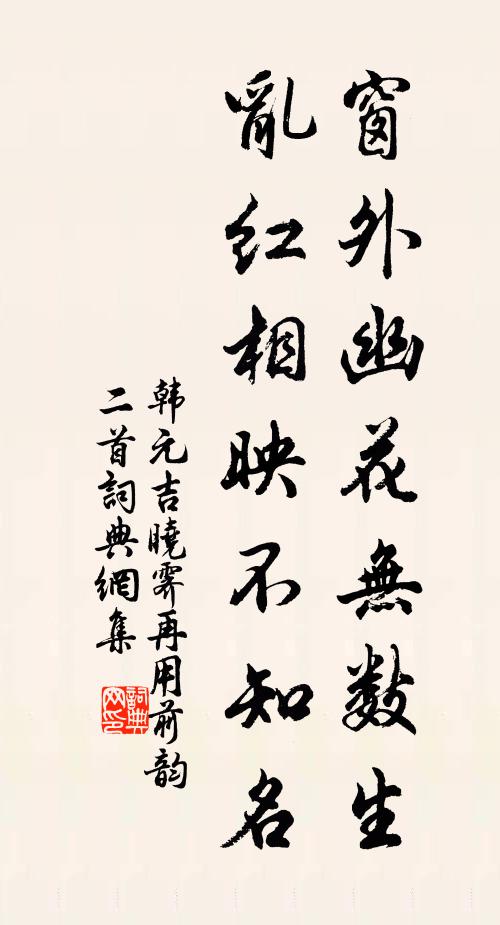 窗外幽花無数生
亂红相映不知名
韩元吉曉霽再用前韵
二首詞典網集
詞典网印